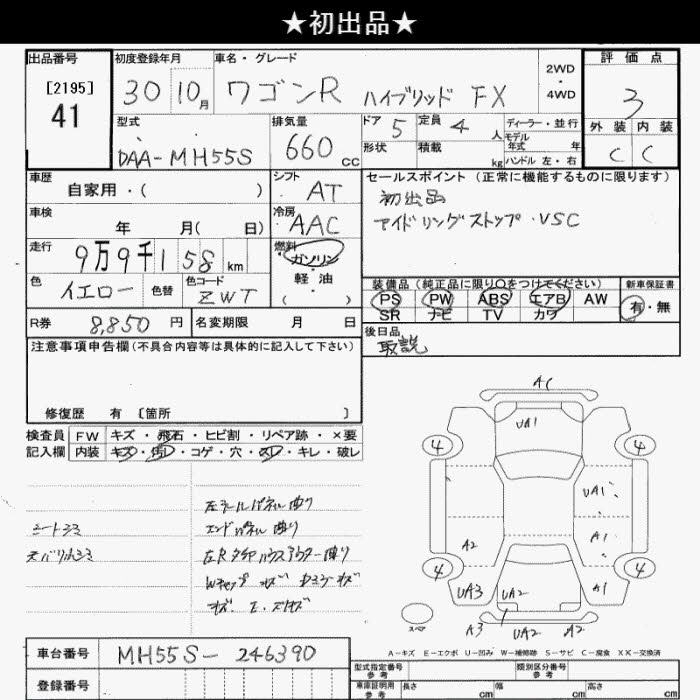 ★初出品★
出品番号
[2195]
41
初度登録年月
30 10月
車名・グレード
ワゴンR ハイブリッド FX
2WD
・
4WD
評価点
3
外装 内装
C C
型式
DAA-MH55S
排気量
660 cc
ドア 5
定員 4 人
形状
積載 kg
ディーラー・並行
モデル
年式 年
ハンドル 左・右
車歴
自家用・( )
シフト
AT
車検
年 月( 日)
冷房
AAC
走行
9万9千158 km
燃料
ガソリン
・
軽油
( )
色
イエロー
色替
色コード
ZWT
R券 8,850 円
名変期限 月 日
セールスポイント (正常に機能するものに限ります)
初出品
アイドリングストップ・VSC
装備品 (純正品に限り○をつけてください)
PS PW ABS エアB AW
SR ナビ TV カワ
新車保証書
有・無
後日品
取説
注意事項申告欄(不具合内容等は具体的に記入して下さい)
修復歴 有 [箇所 ]
検査員
記入欄
FW キズ・飛石・ヒビ割・リペア跡・×要
内装 キズ・汚レ・コゲ・穴・スレ・キレ・破レ
シートシミ
天バリシミ
エンドパネル曲り
A1
UA1
4 4
UA1
A2
A1
4 4
UA3
UA2
A1
A3
UA2
A2
スペア
A-キズ E-エクボ U-凹み W-補修跡 S-サビ C-腐食 XX-交換済
車台番号
MH55S-246390
登録番号
型式指定番号
参考
類別区分番号
参考
車庫証明用
参考
長さ cm
幅 cm
高さ cm